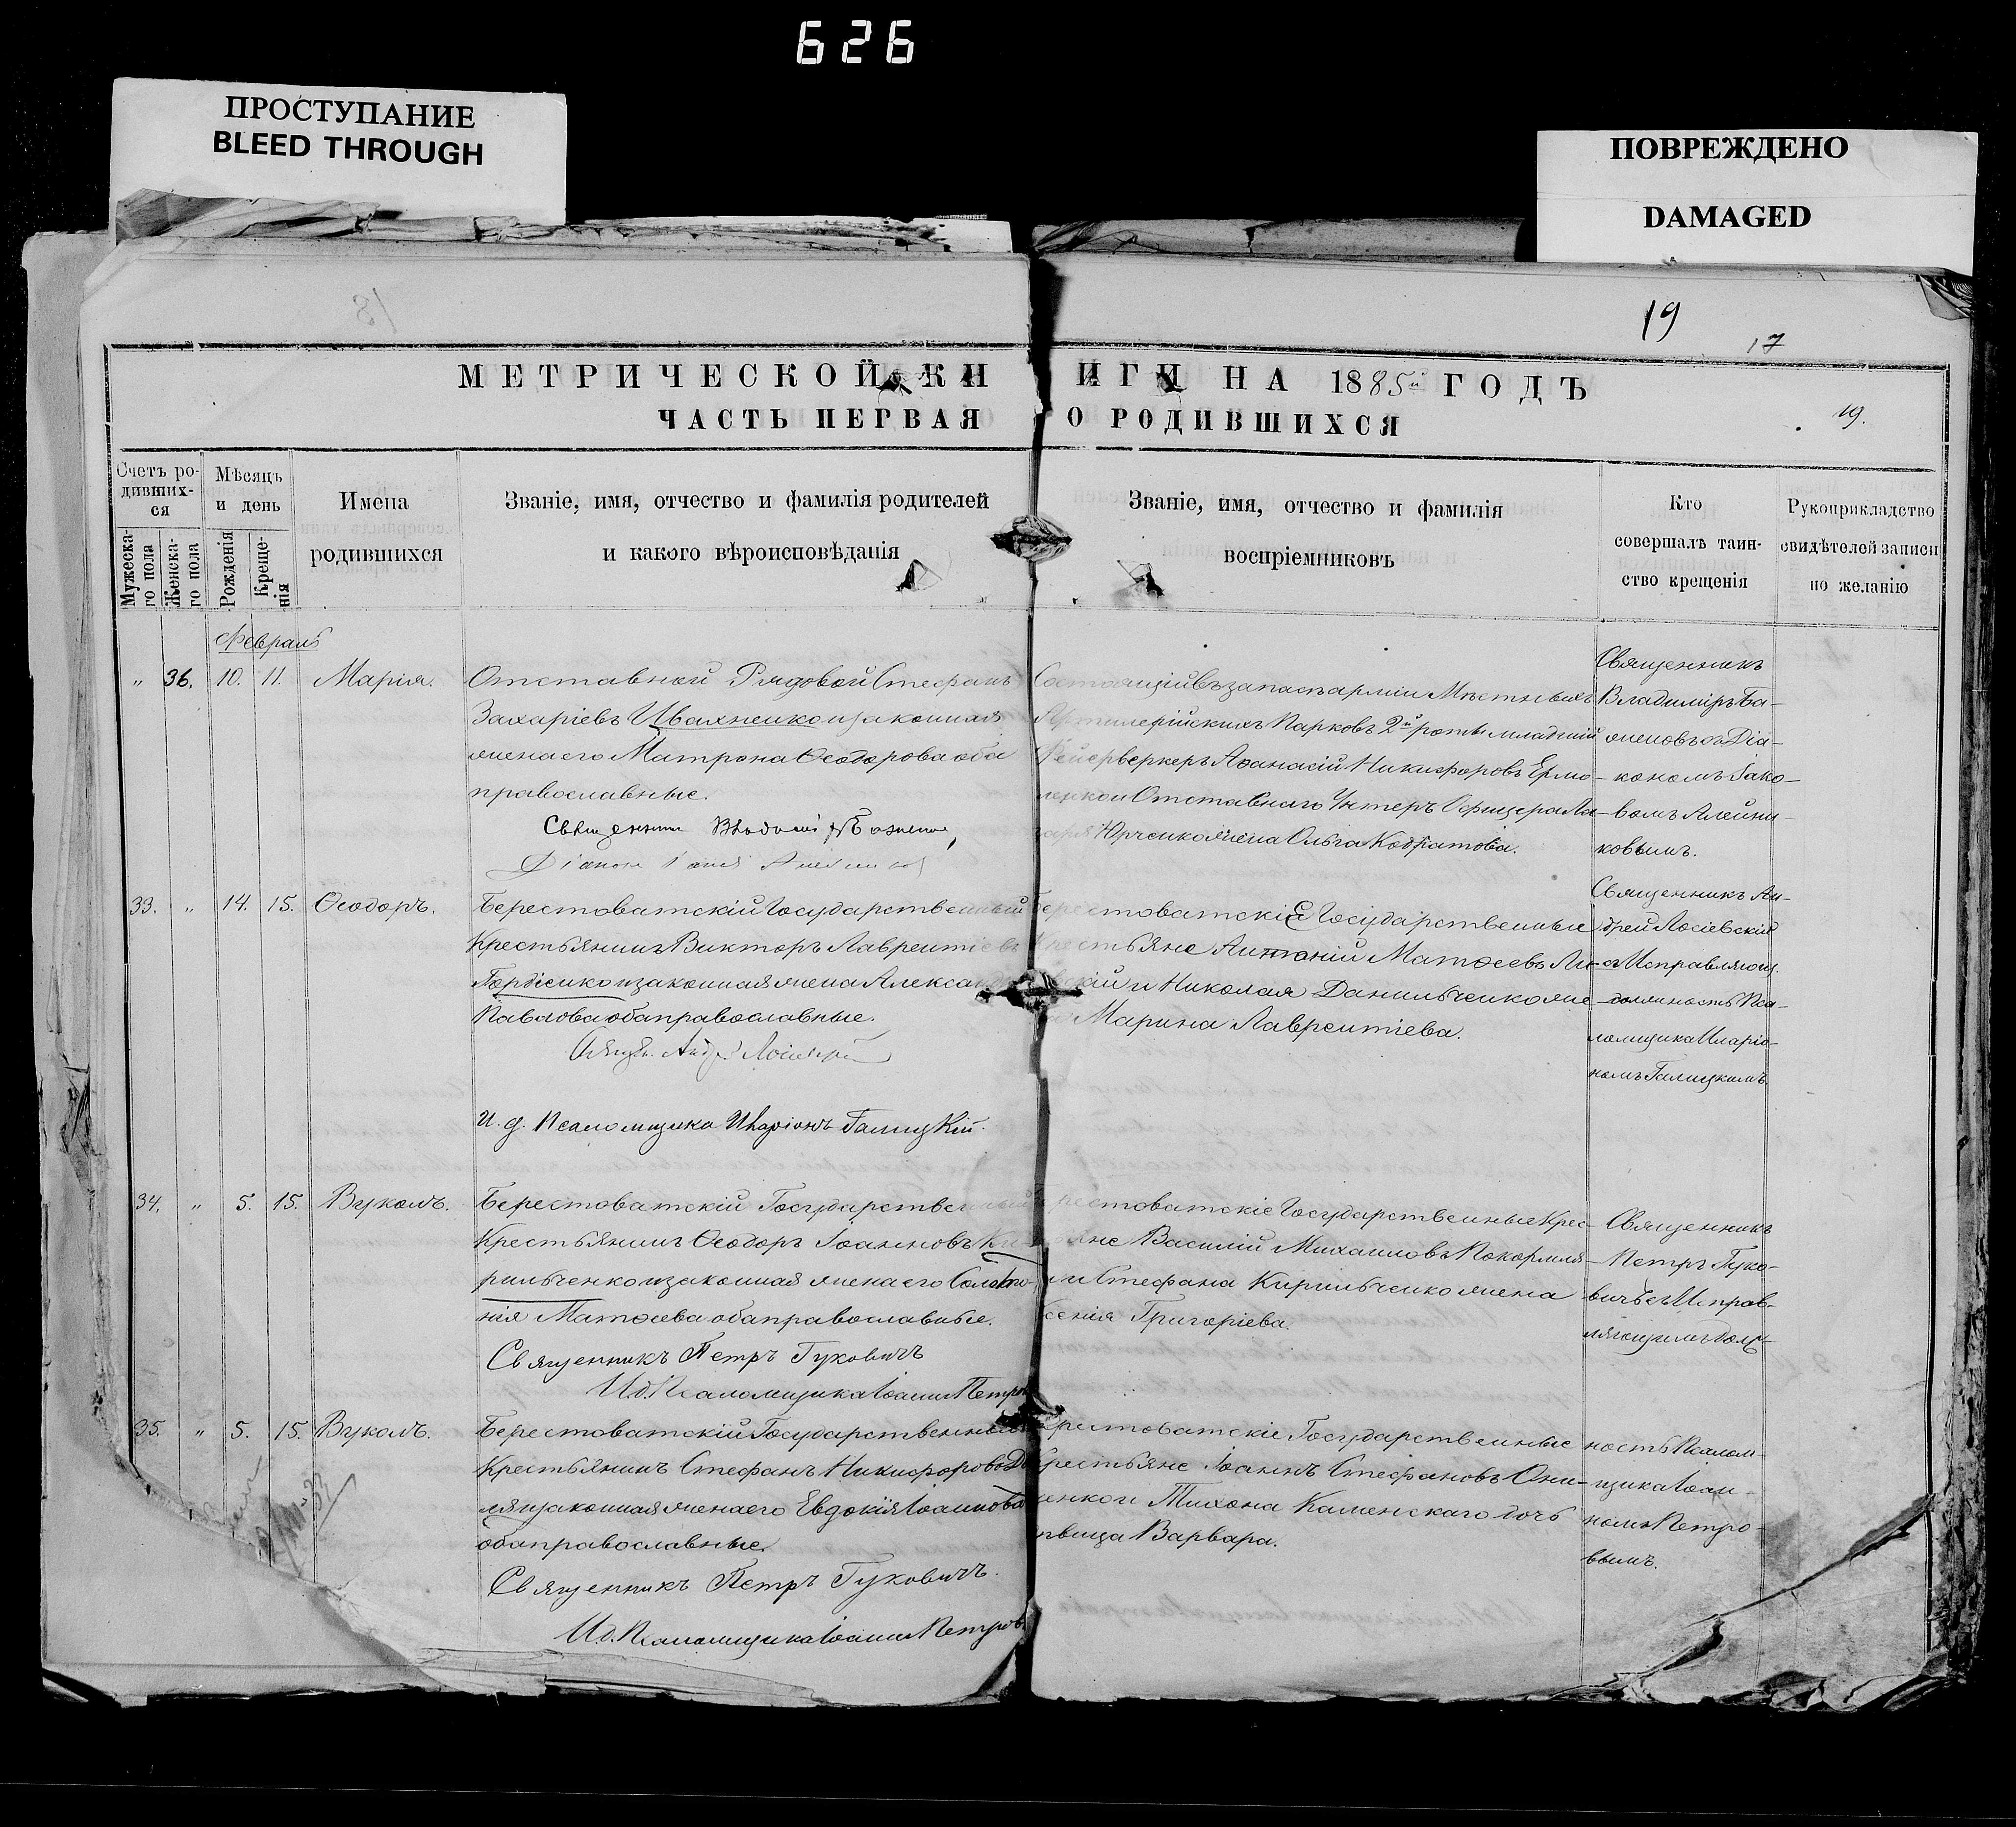 626
ПРОСТУПАНИЕ
BLEED THROUGH
ПОВРЕЖДЕНО
DAMAGED
19
17
МЕТРИЧЕСКОЙ КНИГИ НА 1885й ГОДЪ
ЧАСТЬ ПЕРВАЯ О РОДИВШИХСЯ
19.
Счетъ ро-
дивших-
ся
Мужеска-
го пола
Женска-
го пола
Мѣсяцъ
и день
Рожденія
Креще-
нія
Имена
родившихся
Званіе, имя, отчество и фамилія родителей
и какого вѣроисповѣданія
Званіе, имя, отчество и фамилія
воспріемниковъ
Кто
совершалъ таин-
ство крещенія
Рукоприкладство
свидѣтелей записи
по желанію
Февраль
" 36. 10. 11. Марія.
Отставной Рядовой Стефанъ
Захаріевъ Цвахненко и законная
жена его Матрона Ѳеодорова оба
православные.
Состоящій въ запасѣ арміи Мѣстныхъ
Артилерійскихъ Парковъ 2й роты младшій
Фейерверкеръ Аѳанасій Никифоровъ Ермо-
ленко и Отставнаго Унтеръ Офицера Ла-
заря Юрченко жена Ольга Кодратова.
Священникъ
Владиміръ Ба-
женовъ съ Діа-
кономъ Іако-
вомъ Алейни-
ковымъ.
33. " 14. 15. Ѳеодоръ.
Берестоватскій Государственный
Крестьянинъ Викторъ Лаврентіевъ
Гордіенко и законная жена Александра
Павлова оба православные.
И. д. Псаломщика Иларіонъ Галицкій.
Берестоватскіе Государственные
Крестьяне Антоній Матѳеевъ Ли-
скій и Николая Данильченко же-
на Марина Лаврентіева.
Священникъ Ан-
дрей Лосіевскій
съ Исправляющ.
должность Пса-
ломщика Иларіо-
номъ Галицкимъ.
34. " 5. 15. Вуколъ.
Берестоватскій Государственный
Крестьянинъ Ѳеодоръ Іоанновъ Ки-
рильченко и законная жена его Соломо-
нія Матѳеева оба православные.
Священникъ Петръ Гуковичъ
И.д. Псаломщика Іоаннъ Петровъ
Берестоватскіе Государственные Крес-
тьяне Василій Михаиловъ Покормля-
и Стефана Кирильченко жена
Ксенія Григоріева.
Священникъ
Петръ Гуко-
вичъ съ Исправ-
ляющимъ долж-
35. " 5. 15. Вуколъ.
Берестоватскій Государственный
Крестьянинъ Стефанъ Никифоровъ
и законная жена его Евдокія Іоаннова
оба православные.
Священникъ Петръ Гуковичъ.
И.д. Псаломщика Іоаннъ Петровъ
Берестоватскіе Государственные
Крестьяне Іоаннъ Стефановъ Они-
щенко и Тихона Каменскаго дочь
дѣвица Варвара.
ность Псалом-
щика Іоан-
номъ Петро-
вымъ.